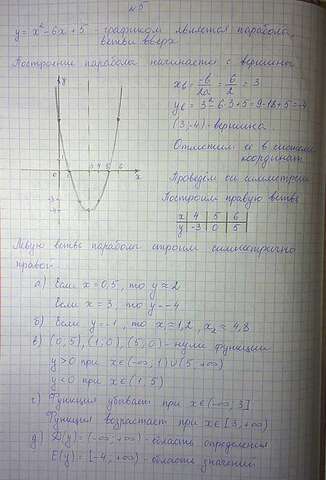 №5
y = x² - 6x + 5 - графиком является парабола,
ветви вверх
Построение параболы начинается с вершины
y
x₆ = -b/2a = 6/2 = 3
y₆ = 3² - 6·3 + 5 = 9 - 18 + 5 = -4
(3;-4) - вершина
Отметим её в системе
координат.
Проведём ось симметрии
Построим правую ветвь
0 1 3 4 5 6 x
x 4 5 6
y -3 0 5
-3
-4
Левую ветвь параболы строим симметрично
правой.
а) Если x = 0,5, то y ≈ 2
Если x = 3, то y = -4
б) Если y = -1, то x₁ ≈ 1,2, x₂ ≈ 4,8
в) (0;5), (1;0), (5;0) - нули функции
y > 0 при x∈(-∞; 1)∪(5; +∞)
y < 0 при x∈(1; 5)
г) Функция убывает при x∈(-∞; 3]
Функция возрастает при x∈[3; +∞)
д) D(y) = (-∞; +∞) - область определения
E(y) = [-4; +∞) - область значений